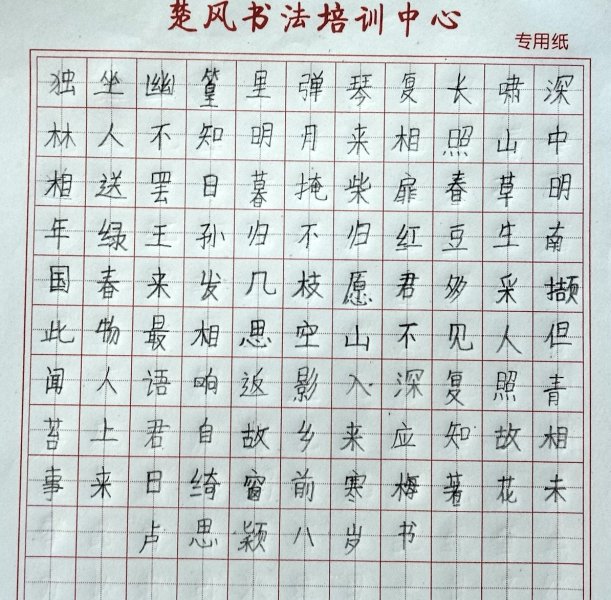 楚风书法培训中心
专用纸
独坐幽篁里弹琴复长啸深
林人不知明月来相照山中
相送罢日暮掩柴扉春草明
年绿王孙归不归红豆生南
国春来发几枝愿君多采撷
此物最相思空山不见人但
闻人语响返影入深复照青
苔上君自故乡来应知故相
事来日绮窗前寒梅著花未
卢思颖八岁书